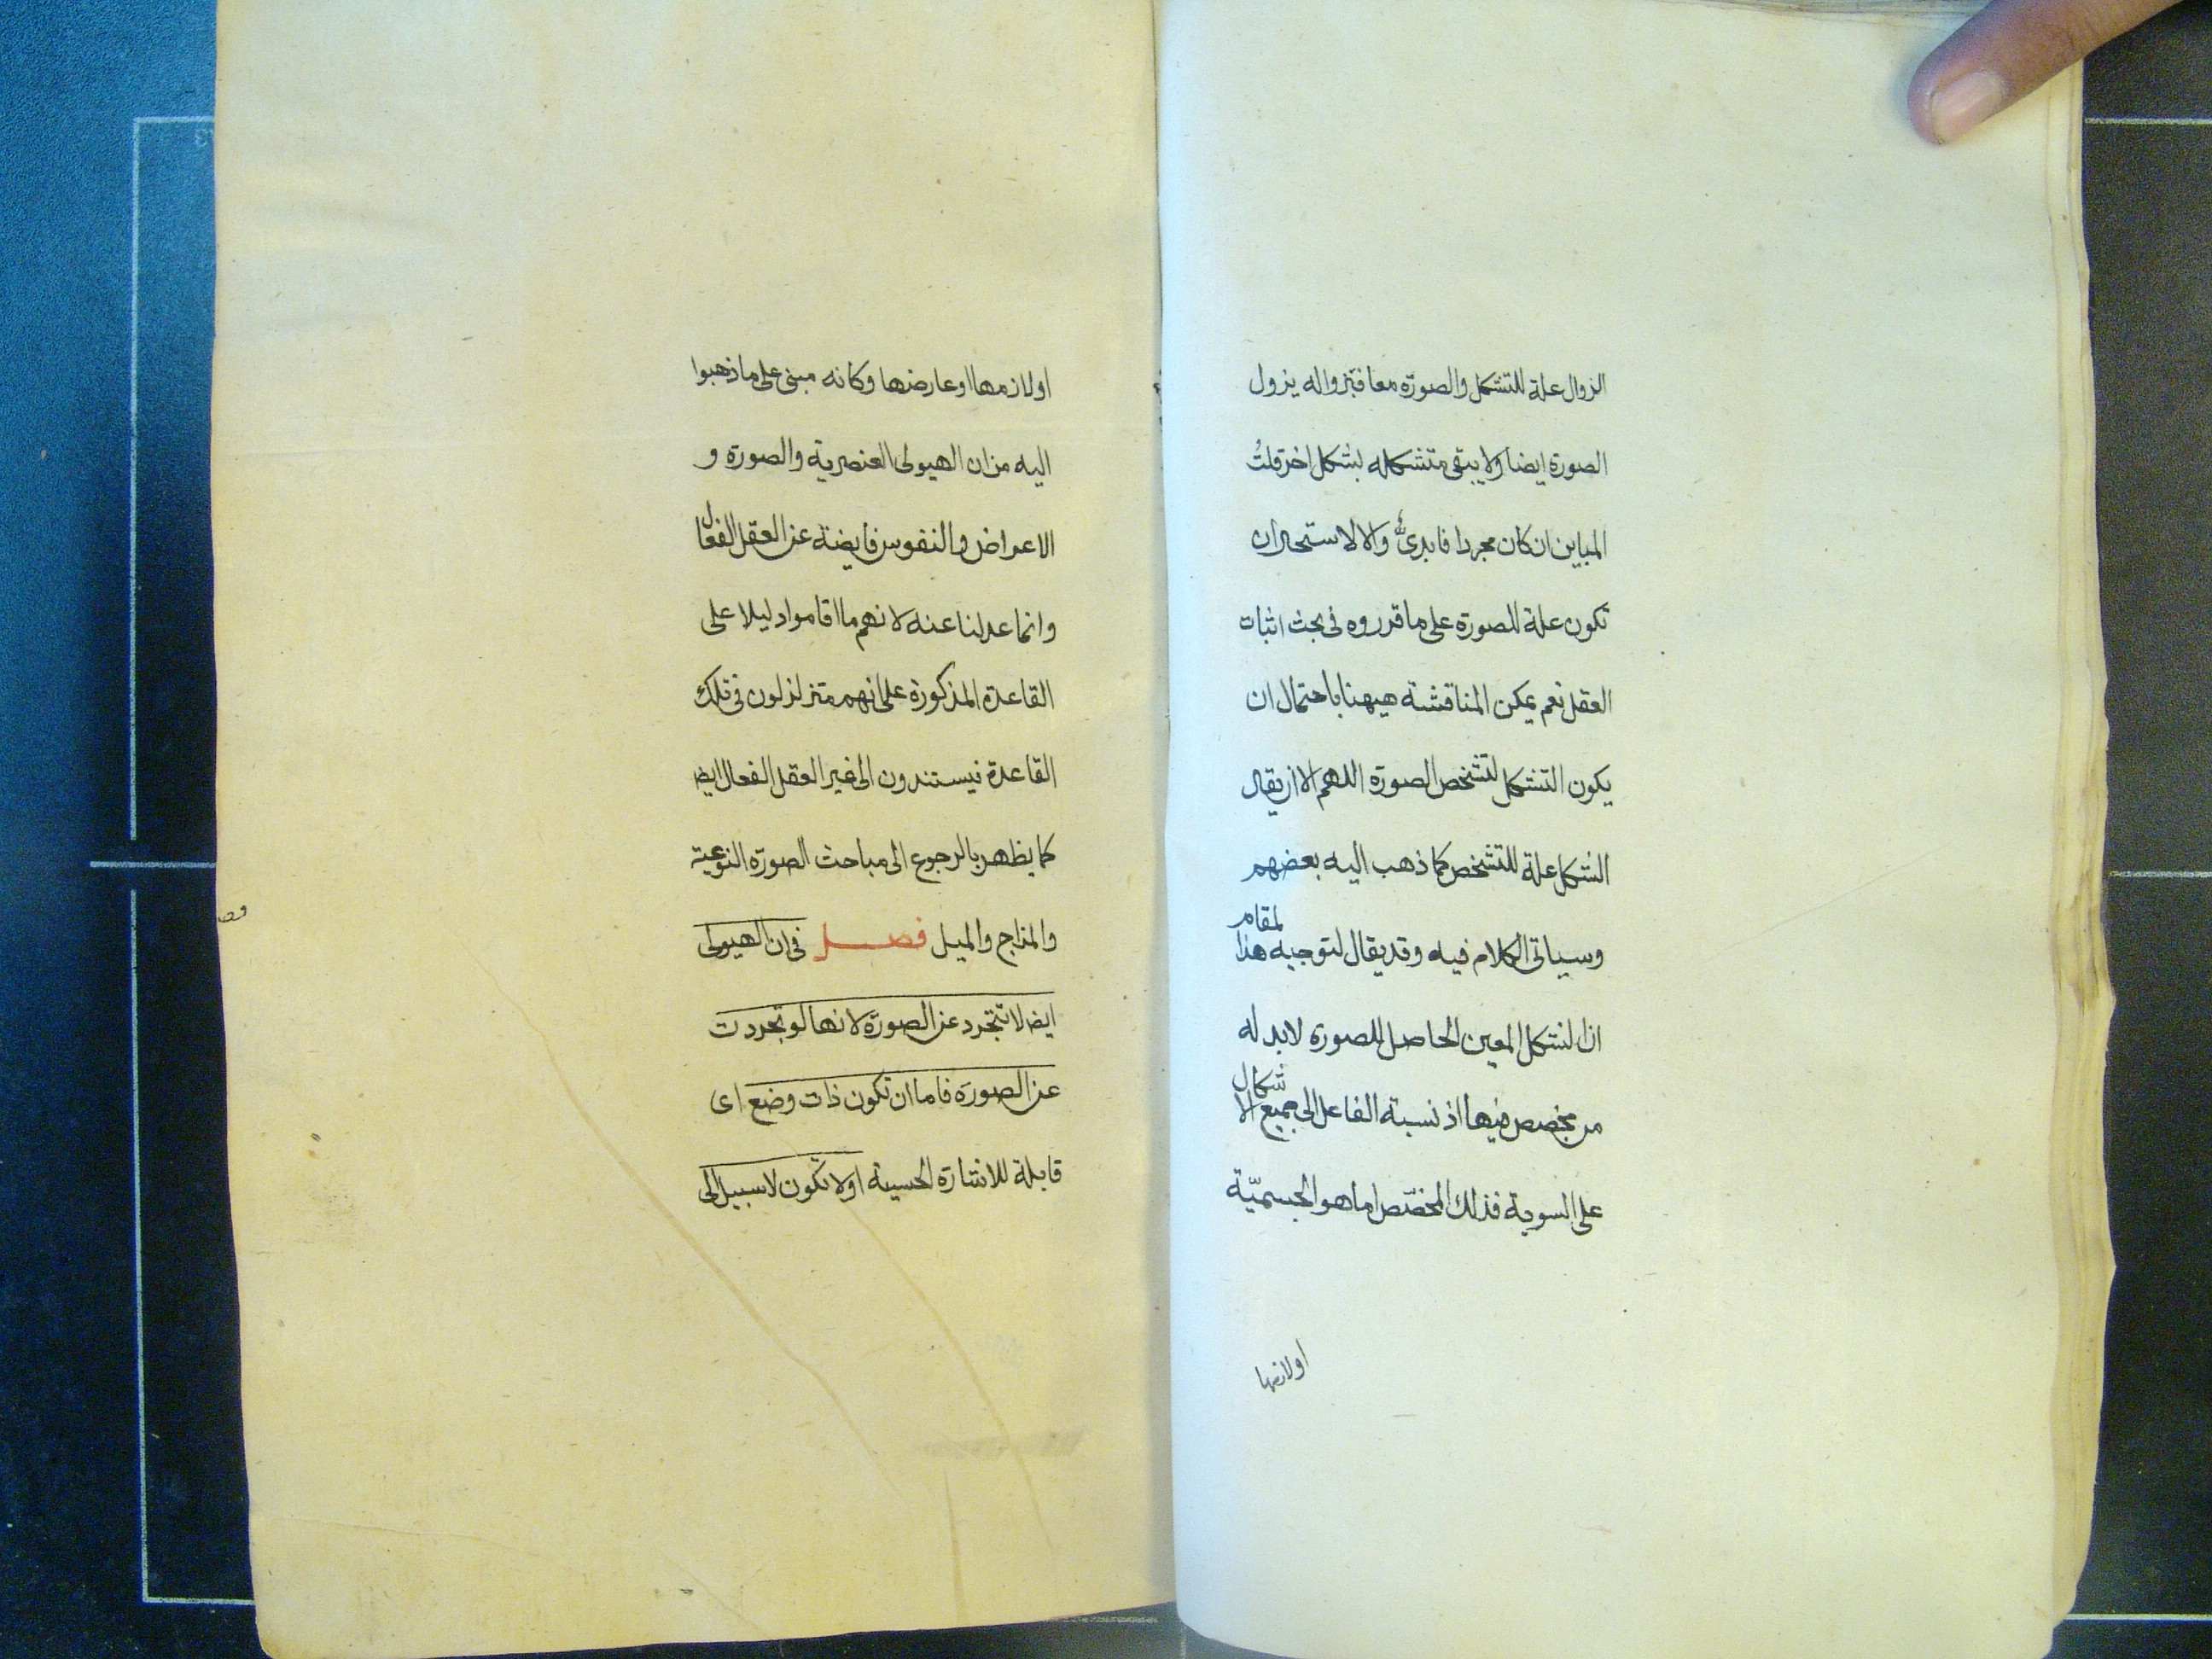 الزوال علة للتشكل والصورة معا فبزواله يزول
الصورة ايضا ولا يبقى متشكله بشكل اخر قلتُ
المباين ان كان مجردا فابدىٌّ والا لاستحال ان
تكون علة للصورة على ما قرروه فى بحث اثبات
العقل نعم يمكن المناقشة هيهنا باحتمال ان
يكون التشكل لتشخص الصورة اللهم الا ان يقال
الشكل علة للتشخص كما ذهب اليه بعضهم
وسياتى الكلام فيه وقد يقال لتوجيه هذا لمقام
ان الشكل المعين الحاصل للصورة لابد له
من مخصص فيها اذ نسبة الفاعل الى جميع الاشكال
على السوية فذلك المخصّص اما هو الجسميّة
اولازمها
اولازمها اوعارضها وكانه مبنى على ما ذهبوا
اليه من ان الهيولى العنصرية والصورة و
الاعراض والنفوس فايضة عن العقل الفعال
وانما عدلنا عنه لانهم ما اقاموا دليلا على
القاعدة المذكورة على انهم متزلزلون فى تلك
القاعدة فيستندون الى غير العقل الفعال ايضا
كما يظهر بالرجوع الى مباحث الصورة النوعية
والمزاج والميل فصل فى ان الهيولى
ايضا لا تتجرد عن الصورة لانها لو تجردت
عن الصورة فاما ان تكون ذات وضع اى
قابلة للاشارة الحسية اولا تكون لا سبيل الى